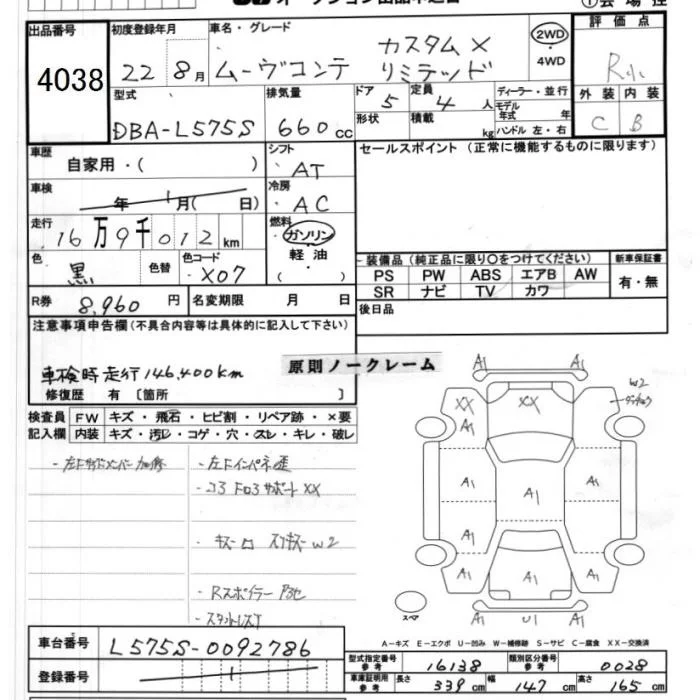 出品番号
4038
初度登録年月
22 8月
車名・グレード
ムーヴコンテ カスタムX リミテッド
2WD
・
4WD
評価点
R
外装 内装
C B
型式
DBA-L575S
排気量
660 cc
ドア
5
定員
4 人
形状
積載
kg
ディーラー・並行
モデル年式 年
ハンドル 左・右
車歴
自家用・( )
シフト
AT
セールスポイント (正常に機能するものに限ります)
車検
年 月( 日)
冷房
AC
走行
16万9千012km
燃料
ガソリン
・
軽油
( )
色
黒
色替
色コード
X07
装備品 (純正品に限り○をつけてください)
PS PW ABS エアB AW
SR ナビ TV カワ
新車保証書
有・無
R券
8,960 円
名変期限 月 日
後日品
注意事項申告欄(不具合内容等は具体的に記入して下さい)
車検時走行146,400km
修復歴 有 〔箇所 〕
原則ノークレーム
検査員記入欄
FW キズ・飛石・ヒビ割・リペア跡・×要
内装 キズ・汚レ・コゲ・穴・スレ・キレ・破レ
・左Fサイドメンバー
・左Fインパネ
・コアサポートXX
・キズ W2
・Rスポイラー
A1 A1
W2
XX XX
A1
A1 A1 A1
A1 A1 A1
A1 U1 A1
スペア
A-キズ E-エクボ U-凹み W-補修跡 S-サビ C-腐食 XX-交換済
車台番号
L575S-0092786
登録番号
型式指定番号
参考
16138
類別区分番号
参考
0028
車庫証明用
参考
長さ
339 cm
幅
147 cm
高さ
165 cm